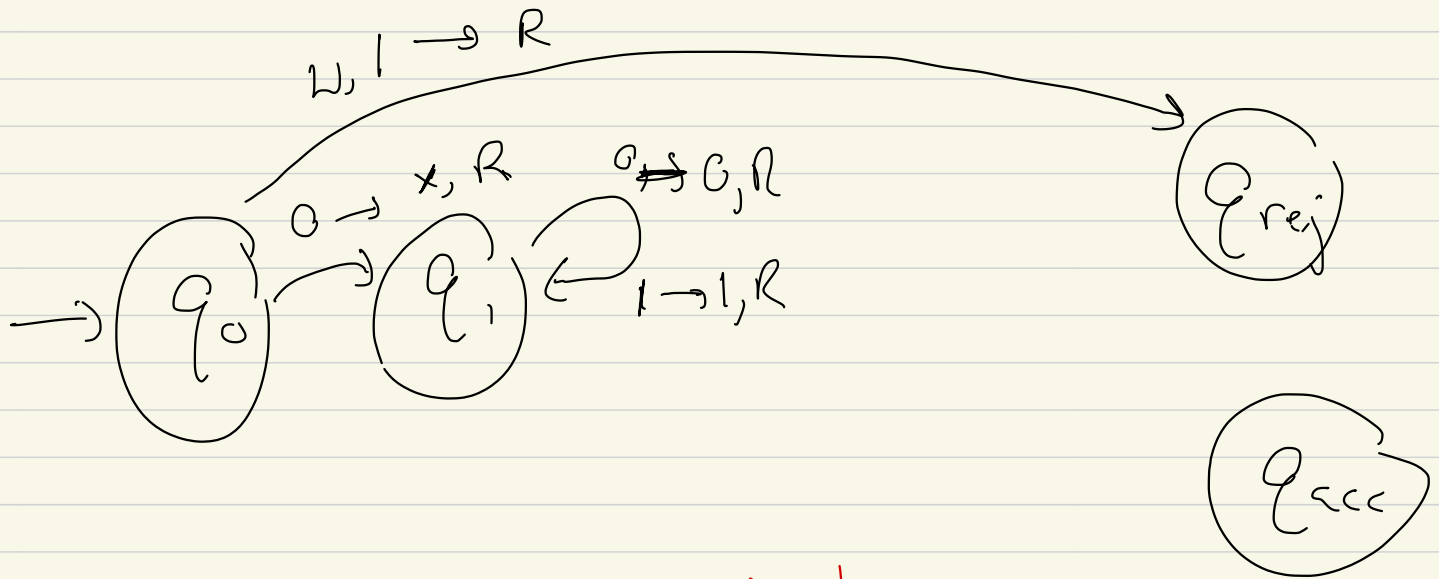 ⊔, 1 → R
0 → x, R
0 → 0, R
1 → 1, R
q0
q1
qrej
qacc